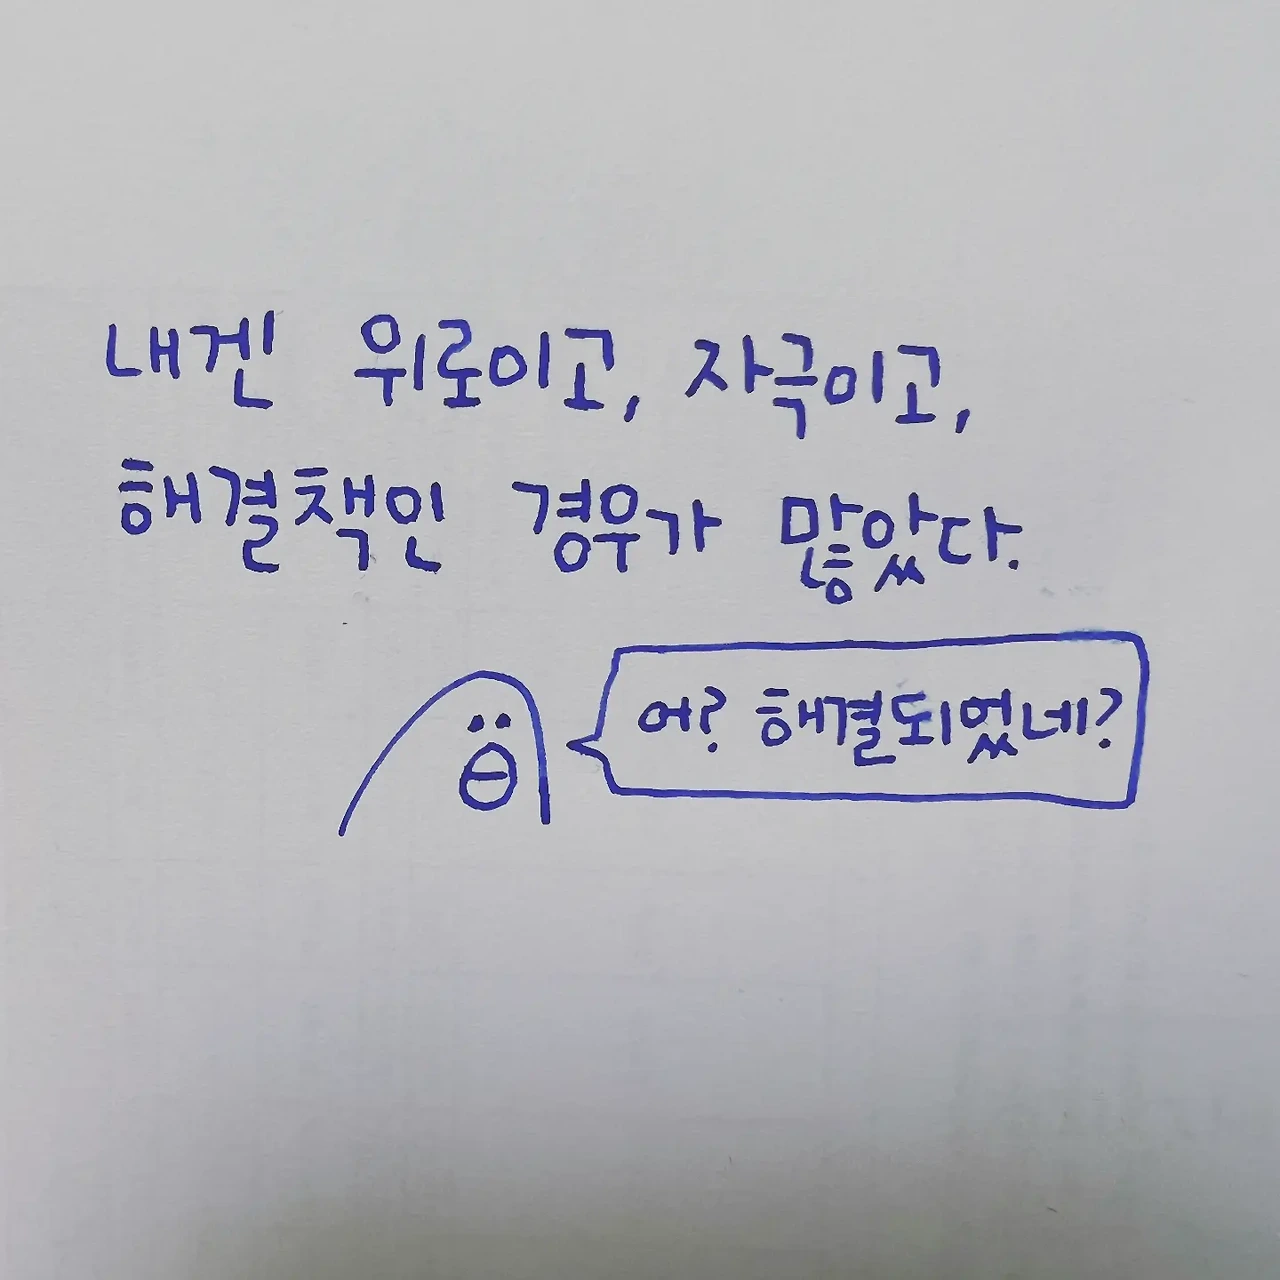 내겐 위로이고, 자극이고,
해결책인 경우가 많았다.
어? 해결되었네?